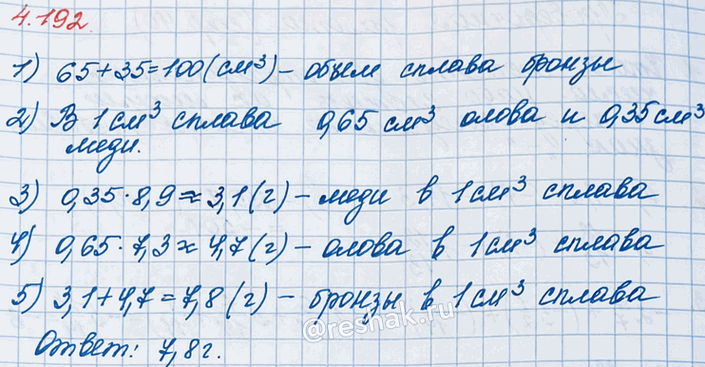 4.192.
1) 65+35=100(см³) – объем сплава бронзы
2) В 1см³ сплава 0,65 см³ олова и 0,35см³
меди.
3) 0,35·8,9≈3,1(г) – меди в 1см³ сплава
4) 0,65·7,3≈4,7(г) – олова в 1см³ сплава
5) 3,1+4,7=7,8(г) – бронзы в 1см³ сплава
@reshak.ru
Ответ: 7,8г.